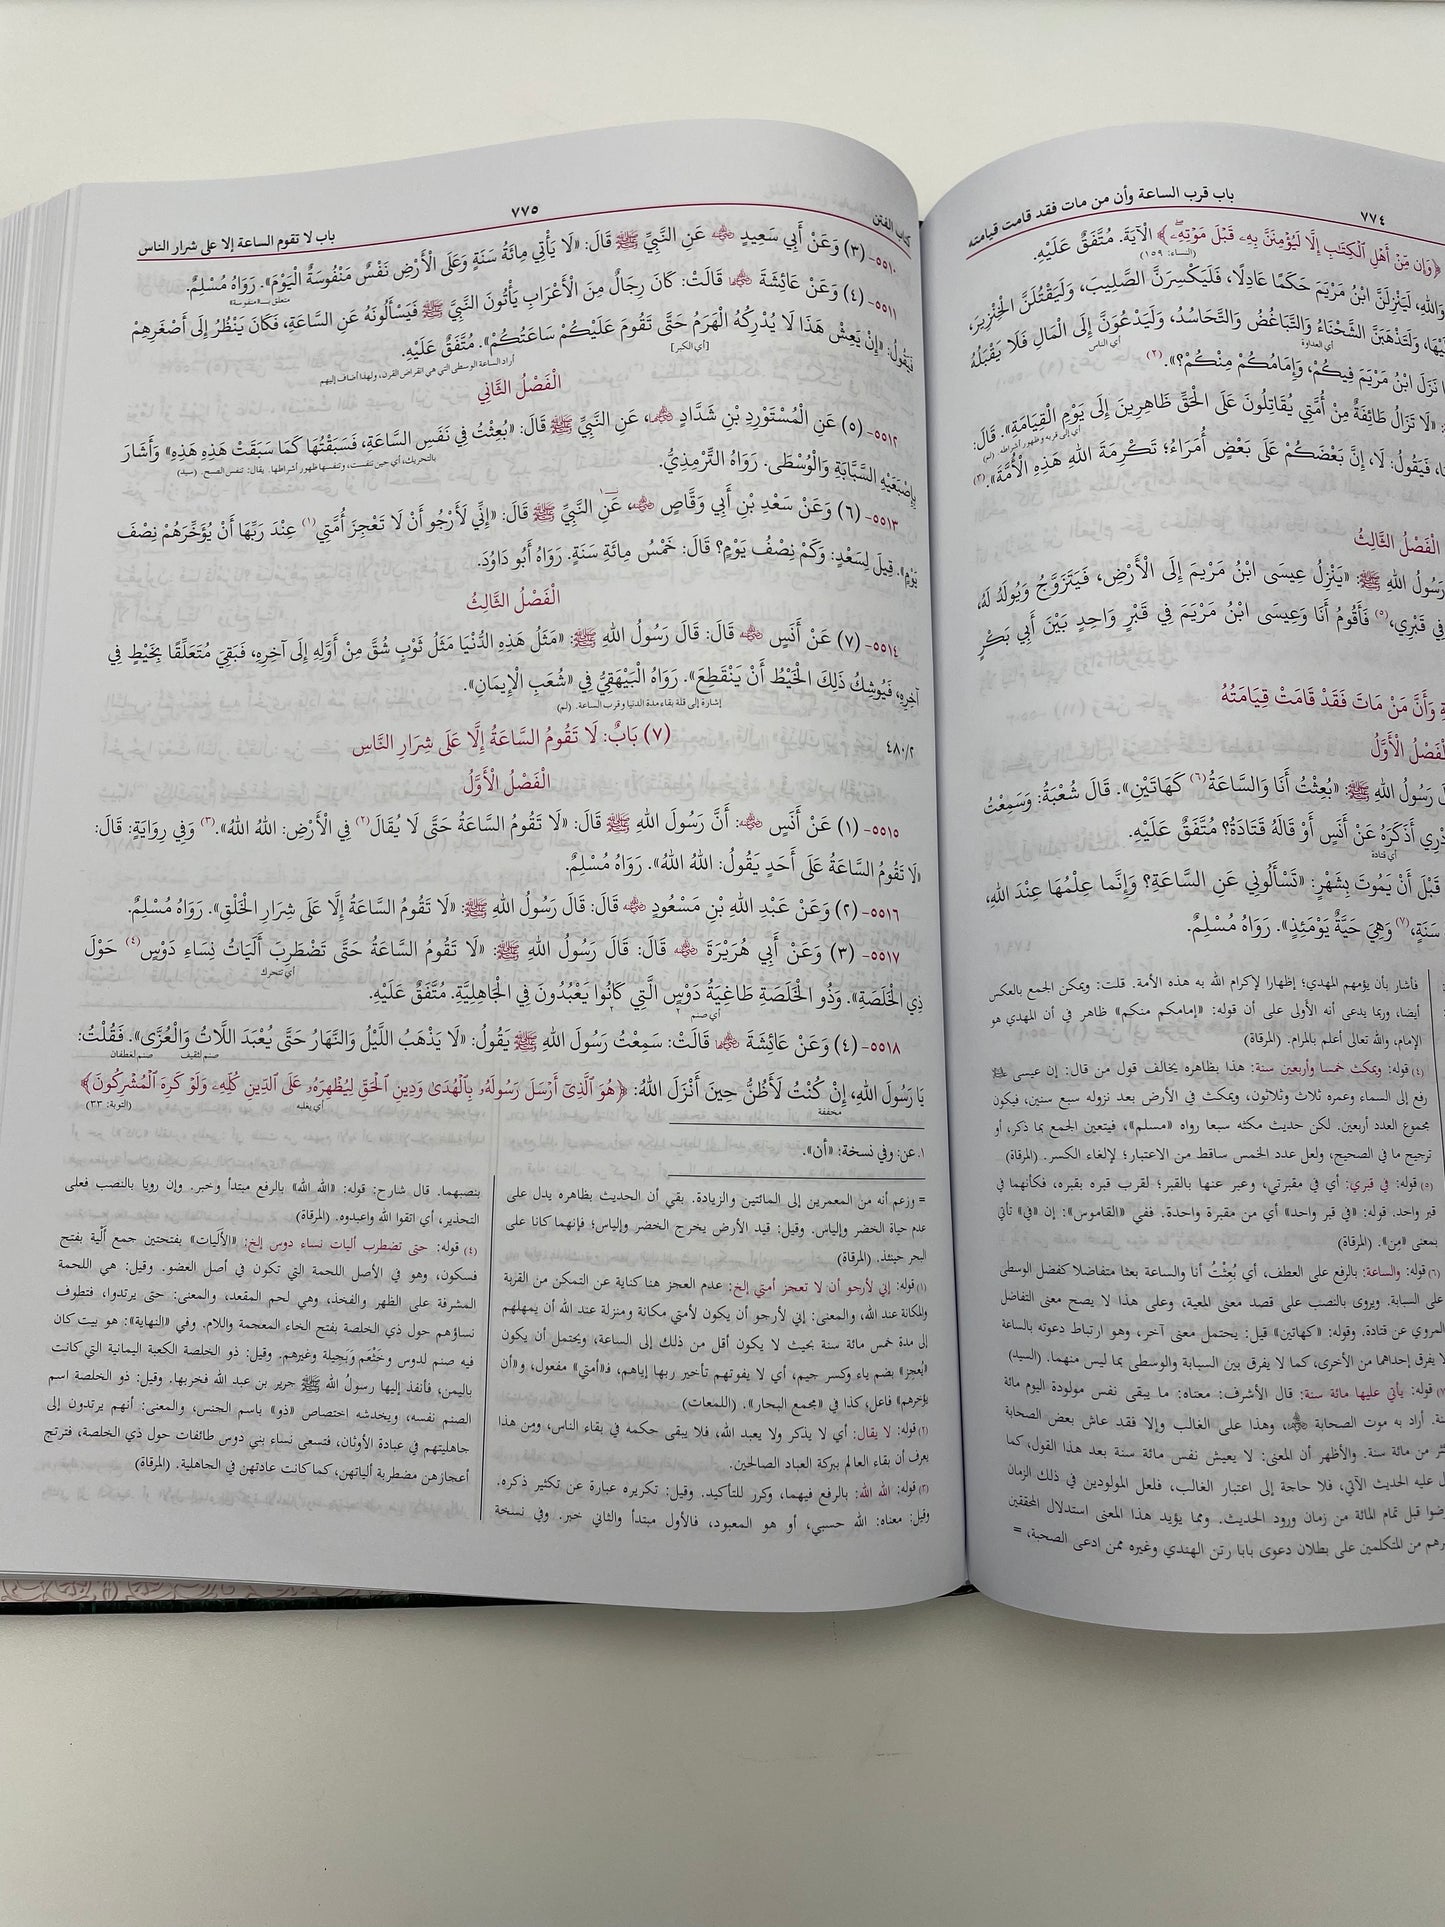 باب قرب الساعة وأن من مات فقد قامت قيامته
٧٧٤
﴿وَإِن مِّنْ أَهْلِ الْكِتَابِ إِلَّا لَيُؤْمِنَنَّ بِهِ قَبْلَ مَوْتِهِ﴾ الْآيَةَ. مُتَّفَقٌ عَلَيْهِ.
(النساء: ١٥٩)
وَاللهِ، لَيَنْزِلَنَّ ابْنُ مَرْيَمَ حَكَمًا عَادِلًا، فَلَيَكْسِرَنَّ الصَّلِيبَ، وَلَيَقْتُلَنَّ الْخِنْزِيرَ،
وَلَتَذْهَبَنَّ الشَّحْنَاءُ وَالتَّبَاغُضُ وَالتَّحَاسُدُ، وَلَيَدْعُوَنَّ إِلَى الْمَالِ فَلَا يَقْبَلُهُ
أي العداوة أي الناس
نَزَلَ ابْنُ مَرْيَمَ فِيكُمْ، وَإِمَامُكُمْ مِنْكُمْ؟». (٢)
«لَا تَزَالُ طَائِفَةٌ مِنْ أُمَّتِي يُقَاتِلُونَ عَلَى الْحَقِّ ظَاهِرِينَ إِلَى يَوْمِ الْقِيَامَةِ». قَالَ:
أي إلى قربه وظهور أشراطه. (لم)
فَيَقُولُ: لَا، إِنَّ بَعْضَكُمْ عَلَى بَعْضٍ أُمَرَاءُ؛ تَكْرِمَةَ اللهِ هَذِهِ الْأُمَّةَ». (٣)
الْفَصْلُ الثَّالِثُ
رَسُولُ اللهِ ﷺ: «يَنْزِلُ عِيسَى ابْنُ مَرْيَمَ إِلَى الْأَرْضِ، فَيَتَزَوَّجُ وَيُولَدُ لَهُ،
فِي قَبْرِي، (٥) فَأَقُومُ أَنَا وَعِيسَى ابْنُ مَرْيَمَ فِي قَبْرٍ وَاحِدٍ بَيْنَ أَبِي بَكْرٍ
وَأَنَّ مَنْ مَاتَ فَقَدْ قَامَتْ قِيَامَتُهُ
الْفَصْلُ الْأَوَّلُ
رَسُولُ اللهِ ﷺ: «بُعِثْتُ أَنَا وَالسَّاعَةُ (٦) كَهَاتَيْنِ». قَالَ شُعْبَةُ: وَسَمِعْتُ
أَذَكَرَهُ عَنْ أَنَسٍ أَوْ قَالَهُ قَتَادَةُ؟ مُتَّفَقٌ عَلَيْهِ.
أي قتادة
قَبْلَ أَنْ يَمُوتَ بِشَهْرٍ: «تَسْأَلُونِي عَنِ السَّاعَةِ؟ وَإِنَّمَا عِلْمُهَا عِنْدَ اللهِ،
سَنَةٍ، (٧) وَهِيَ حَيَّةٌ يَوْمَئِذٍ». رَوَاهُ مُسْلِمٌ.
فأشار بأن يؤمهم المهدي؛ إظهارا لإكرام الله به هذه الأمة. قلت: ويمكن الجمع بالعكس
أيضا، وربما يدعى أنه الأولى على أن قوله: «إمامكم منكم» ظاهر في أن المهدي هو
الإمام، والله تعالى أعلم بالمرام. (المرقاة)
(٤) قوله: ويمكث خمسا وأربعين سنة: هذا بظاهره يخالف قول من قال: إن عيسى
رفع إلى السماء وعمره ثلاث وثلاثون، ويمكث في الأرض بعد نزوله سبع سنين، فيكون
مجموع العدد أربعين. لكن حديث مكثه سبعا رواه «مسلم»، فيتعين الجمع بما ذكر، أو
ترجيح ما في الصحيح، ولعل عدد الخمس ساقط من الاعتبار؛ لإلغاء الكسر. (المرقاة)
(٥) قوله: في قبري: أي في مقبرتي، وعبر عنها بالقبر؛ لقرب قبره بقبره، فكأنهما في
قبر واحد. قوله: «في قبر واحد» أي من مقبرة واحدة. ففي «القاموس»: إن «في» تأتي
بمعنى «مِن». (المرقاة)
(٦) قوله: والساعة: بالرفع على العطف، أي بُعِثْتُ أنا والساعة بعثا متفاضلا كفضل الوسطى
على السبابة. ويروى بالنصب على قصد معنى المعية، وعلى هذا لا يصح معنى التفاضل
المروي عن قتادة. وقوله: «كهاتين» قيل: يحتمل معنى آخر، وهو ارتباط دعوته بالساعة
لا يفرق إحداهما من الأخرى، كما لا يفرق بين السبابة والوسطى بما ليس منهما. (السيد)
قوله: يأتي عليها مائة سنة: قال الأشرف: معناه: ما يبقى نفس مولودة اليوم مائة
سنة. أراد به موت الصحابة ، وهذا على الغالب وإلا فقد عاش بعض الصحابة
أكثر من مائة سنة. والأظهر أن المعنى: لا يعيش نفس مائة سنة بعد هذا القول، كما
عليه الحديث الآتي، فلا حاجة إلى اعتبار الغالب، فلعل المولودين في ذلك الزمان
قبل تمام المائة من زمان ورود الحديث. ومما يؤيد هذا المعنى استدلال المحققين
من المتكلمين على بطلان دعوى بابا رتن الهندي وغيره ممن ادعى الصحبة، =
كتاب الفتن
٧٧٥
باب لا تقوم الساعة إلا على شرار الناس
٥٥١٠- (٣) وَعَنْ أَبِي سَعِيدٍ عَنِ النَّبِيِّ ﷺ قَالَ: «لَا يَأْتِي مِائَةُ سَنَةٍ وَعَلَى الْأَرْضِ نَفْسٌ مَنْفُوسَةٌ الْيَوْمَ». رَوَاهُ مُسْلِمٌ.
متعلق بـ«منفوسة»
٥٥١١- (٤) وَعَنْ عَائِشَةَ قَالَتْ: كَانَ رِجَالٌ مِنَ الْأَعْرَابِ يَأْتُونَ النَّبِيَّ ﷺ فَيَسْأَلُونَهُ عَنِ السَّاعَةِ، فَكَانَ يَنْظُرُ إِلَى أَصْغَرِهِمْ
فَيَقُولُ: «إِنْ يَعِشْ هَذَا لَا يُدْرِكْهُ الْهَرَمُ حَتَّى تَقُومَ عَلَيْكُمْ سَاعَتُكُمْ». مُتَّفَقٌ عَلَيْهِ.
[أي الكبر] أراد الساعة الوسطى التي هي انقراض القرن، ولهذا أضاف إليهم
الْفَصْلُ الثَّانِي
٥٥١٢- (٥) عَنِ الْمُسْتَوْرِدِ بْنِ شَدَّادٍ ، عَنِ النَّبِيِّ ﷺ قَالَ: «بُعِثْتُ فِي نَفَسِ السَّاعَةِ، فَسَبَقْتُهَا كَمَا سَبَقَتْ هَذِهِ هَذِهِ» وَأَشَارَ
بالتحريك، أي حين تنفست، وتنفسها ظهور أشراطها. يقال: تنفس الصبح. (سيد)
بِإِصْبَعَيْهِ السَّبَّابَةِ وَالْوُسْطَى. رَوَاهُ التِّرْمِذِيُّ.
٥٥١٣- (٦) وَعَنْ سَعْدِ بْنِ أَبِي وَقَّاصٍ ، عَنِ١ النَّبِيِّ ﷺ قَالَ: «إِنِّي لَأَرْجُو أَنْ لَا تَعْجِزَ أُمَّتِي (١) عِنْدَ رَبِّهَا أَنْ يُؤَخِّرَهُمْ نِصْفَ
يَوْمٍ». قِيلَ لِسَعْدٍ: وَكَمْ نِصْفُ يَوْمٍ؟ قَالَ: خَمْسُ مِائَةِ سَنَةٍ. رَوَاهُ أَبُو دَاوُدَ.
الْفَصْلُ الثَّالِثُ
٥٥١٤- (٧) عَنْ أَنَسٍ قَالَ: قَالَ رَسُولُ اللهِ ﷺ: «مَثَلُ هَذِهِ الدُّنْيَا مَثَلُ ثَوْبٍ شُقَّ مِنْ أَوَّلِهِ إِلَى آخِرِهِ، فَبَقِيَ مُتَعَلِّقًا بِخَيْطٍ فِي
آخِرِهِ، فَيُوشِكُ ذَلِكَ الْخَيْطُ أَنْ يَنْقَطِعَ». رَوَاهُ الْبَيْهَقِيُّ فِي «شُعَبِ الْإِيمَانِ».
إشارة إلى قلة بقاء مدة الدنيا وقرب الساعة. (لم)
٤٨٠/٢ (٧) بَابٌ: لَا تَقُومُ السَّاعَةُ إِلَّا عَلَى شِرَارِ النَّاسِ
الْفَصْلُ الْأَوَّلُ
٥٥١٥- (١) عَنْ أَنَسٍ : أَنَّ رَسُولَ اللهِ ﷺ قَالَ: «لَا تَقُومُ السَّاعَةُ حَتَّى لَا يُقَالَ (٢) فِي الْأَرْضِ: اللهُ اللهُ». (٣) وَفِي رِوَايَةٍ: قَالَ:
«لَا تَقُومُ السَّاعَةُ عَلَى أَحَدٍ يَقُولُ: اللهُ اللهُ». رَوَاهُ مُسْلِمٌ.
٥٥١٦- (٢) وَعَنْ عَبْدِ اللهِ بْنِ مَسْعُودٍ قَالَ: قَالَ رَسُولُ اللهِ ﷺ: «لَا تَقُومُ السَّاعَةُ إِلَّا عَلَى شِرَارِ الْخَلْقِ». رَوَاهُ مُسْلِمٌ.
٥٥١٧- (٣) وَعَنْ أَبِي هُرَيْرَةَ قَالَ: قَالَ رَسُولُ اللهِ ﷺ: «لَا تَقُومُ السَّاعَةُ حَتَّى تَضْطَرِبَ أَلَيَاتُ نِسَاءِ دَوْسٍ (٤) حَوْلَ
أي تتحرك
ذِي الْخَلَصَةِ». وَذُو الْخَلَصَةِ طَاغِيَةُ دَوْسٍ الَّتِي كَانُوا يَعْبُدُونَ فِي الْجَاهِلِيَّةِ. مُتَّفَقٌ عَلَيْهِ.
أي صنم
٥٥١٨- (٤) وَعَنْ عَائِشَةَ قَالَتْ: سَمِعْتُ رَسُولَ اللهِ ﷺ يَقُولُ: «لَا يَذْهَبُ اللَّيْلُ وَالنَّهَارُ حَتَّى يُعْبَدَ اللَّاتُ وَالْعُزَّى». فَقُلْتُ:
صنم لثقيف صنم لغطفان
يَا رَسُولَ اللهِ، إِنْ كُنْتُ لَأَظُنُّ حِينَ أَنْزَلَ اللهُ: ﴿هُوَ الَّذِي أَرْسَلَ رَسُولَهُ بِالْهُدَى وَدِينِ الْحَقِّ لِيُظْهِرَهُ عَلَى الدِّينِ كُلِّهِ وَلَوْ كَرِهَ الْمُشْرِكُونَ﴾
مخففة أي يغلبه (التوبة: ٣٣)
١. عن: وفي نسخة: «أن».
= وزعم أنه من المعمرين إلى المائتين والزيادة. بقي أن الحديث بظاهره يدل على
عدم حياة الخضر وإلياس. وقيل: قيد الأرض يخرج الخضر وإلياس؛ فإنهما كانا على
البحر حينئذ. (المرقاة)
(١) قوله: إني لأرجو أن لا تعجز أمتي إلخ: عدم العجز هنا كناية عن التمكن من القربة
والمكانة عند الله، والمعنى: إني لأرجو أن يكون لأمتي مكانة ومنزلة عند الله أن يمهلهم
إلى مدة خمس مائة سنة بحيث لا يكون أقل من ذلك إلى الساعة، ويحتمل أن يكون
«يُعجِز» بضم ياء وكسر جيم، أي لا يفوتهم تأخير ربها إياهم، فـ«أمتي» مفعول، و«أن
يؤخرهم» فاعل، كذا في «مجمع البحار». (اللمعات)
(٢) قوله: لا يقال: أي لا يذكر ولا يعبد الله، فلا يبقى حكمه في بقاء الناس، ومن هذا
يعرف أن بقاء العالم ببركة العباد الصالحين.
(٣) قوله: الله الله: بالرفع فيهما، وكرر للتأكيد. وقيل: تكريره عبارة عن تكثير ذكره.
وقيل: معناه: الله حسبي، أو هو المعبود، فالأول مبتدأ والثاني خبر. وفي نسخة
بنصبهما. قال شارح: قوله: «الله الله» بالرفع مبتدأ وخبر. وإن رويا بالنصب فعلى
التحذير، أي اتقوا الله واعبدوه. (المرقاة)
(٤) قوله: حتى تضطرب أليات نساء دوس إلخ: «الأَليات» بفتحتين جمع أَلْية بفتح
فسكون، وهو في الأصل اللحمة التي تكون في أصل العضو. وقيل: هي اللحمة
المشرفة على الظهر والفخذ، وهي لحم المقعد، والمعنى: حتى يرتدوا، فتطوف
نساؤهم حول ذي الخلصة بفتح الخاء المعجمة واللام. وفي «النهاية»: هو بيت كان
فيه صنم لدوس وخَثْعَم وبَجِيلة وغيرهم. وقيل: ذو الخلصة الكعبة اليمانية التي كانت
باليمن، فأنفذ إليها رسولُ الله ﷺ جرير بن عبد الله فخربها. وقيل: ذو الخلصة اسم
الصنم نفسه، ويخدشه اختصاص «ذو» باسم الجنس، والمعنى: أنهم يرتدون إلى
جاهليتهم في عبادة الأوثان، فتسعى نساء بني دوس طائفات حول ذي الخلصة، فترتج
أعجازهن مضطربة ألياتهن، كما كانت عادتهن في الجاهلية. (المرقاة)